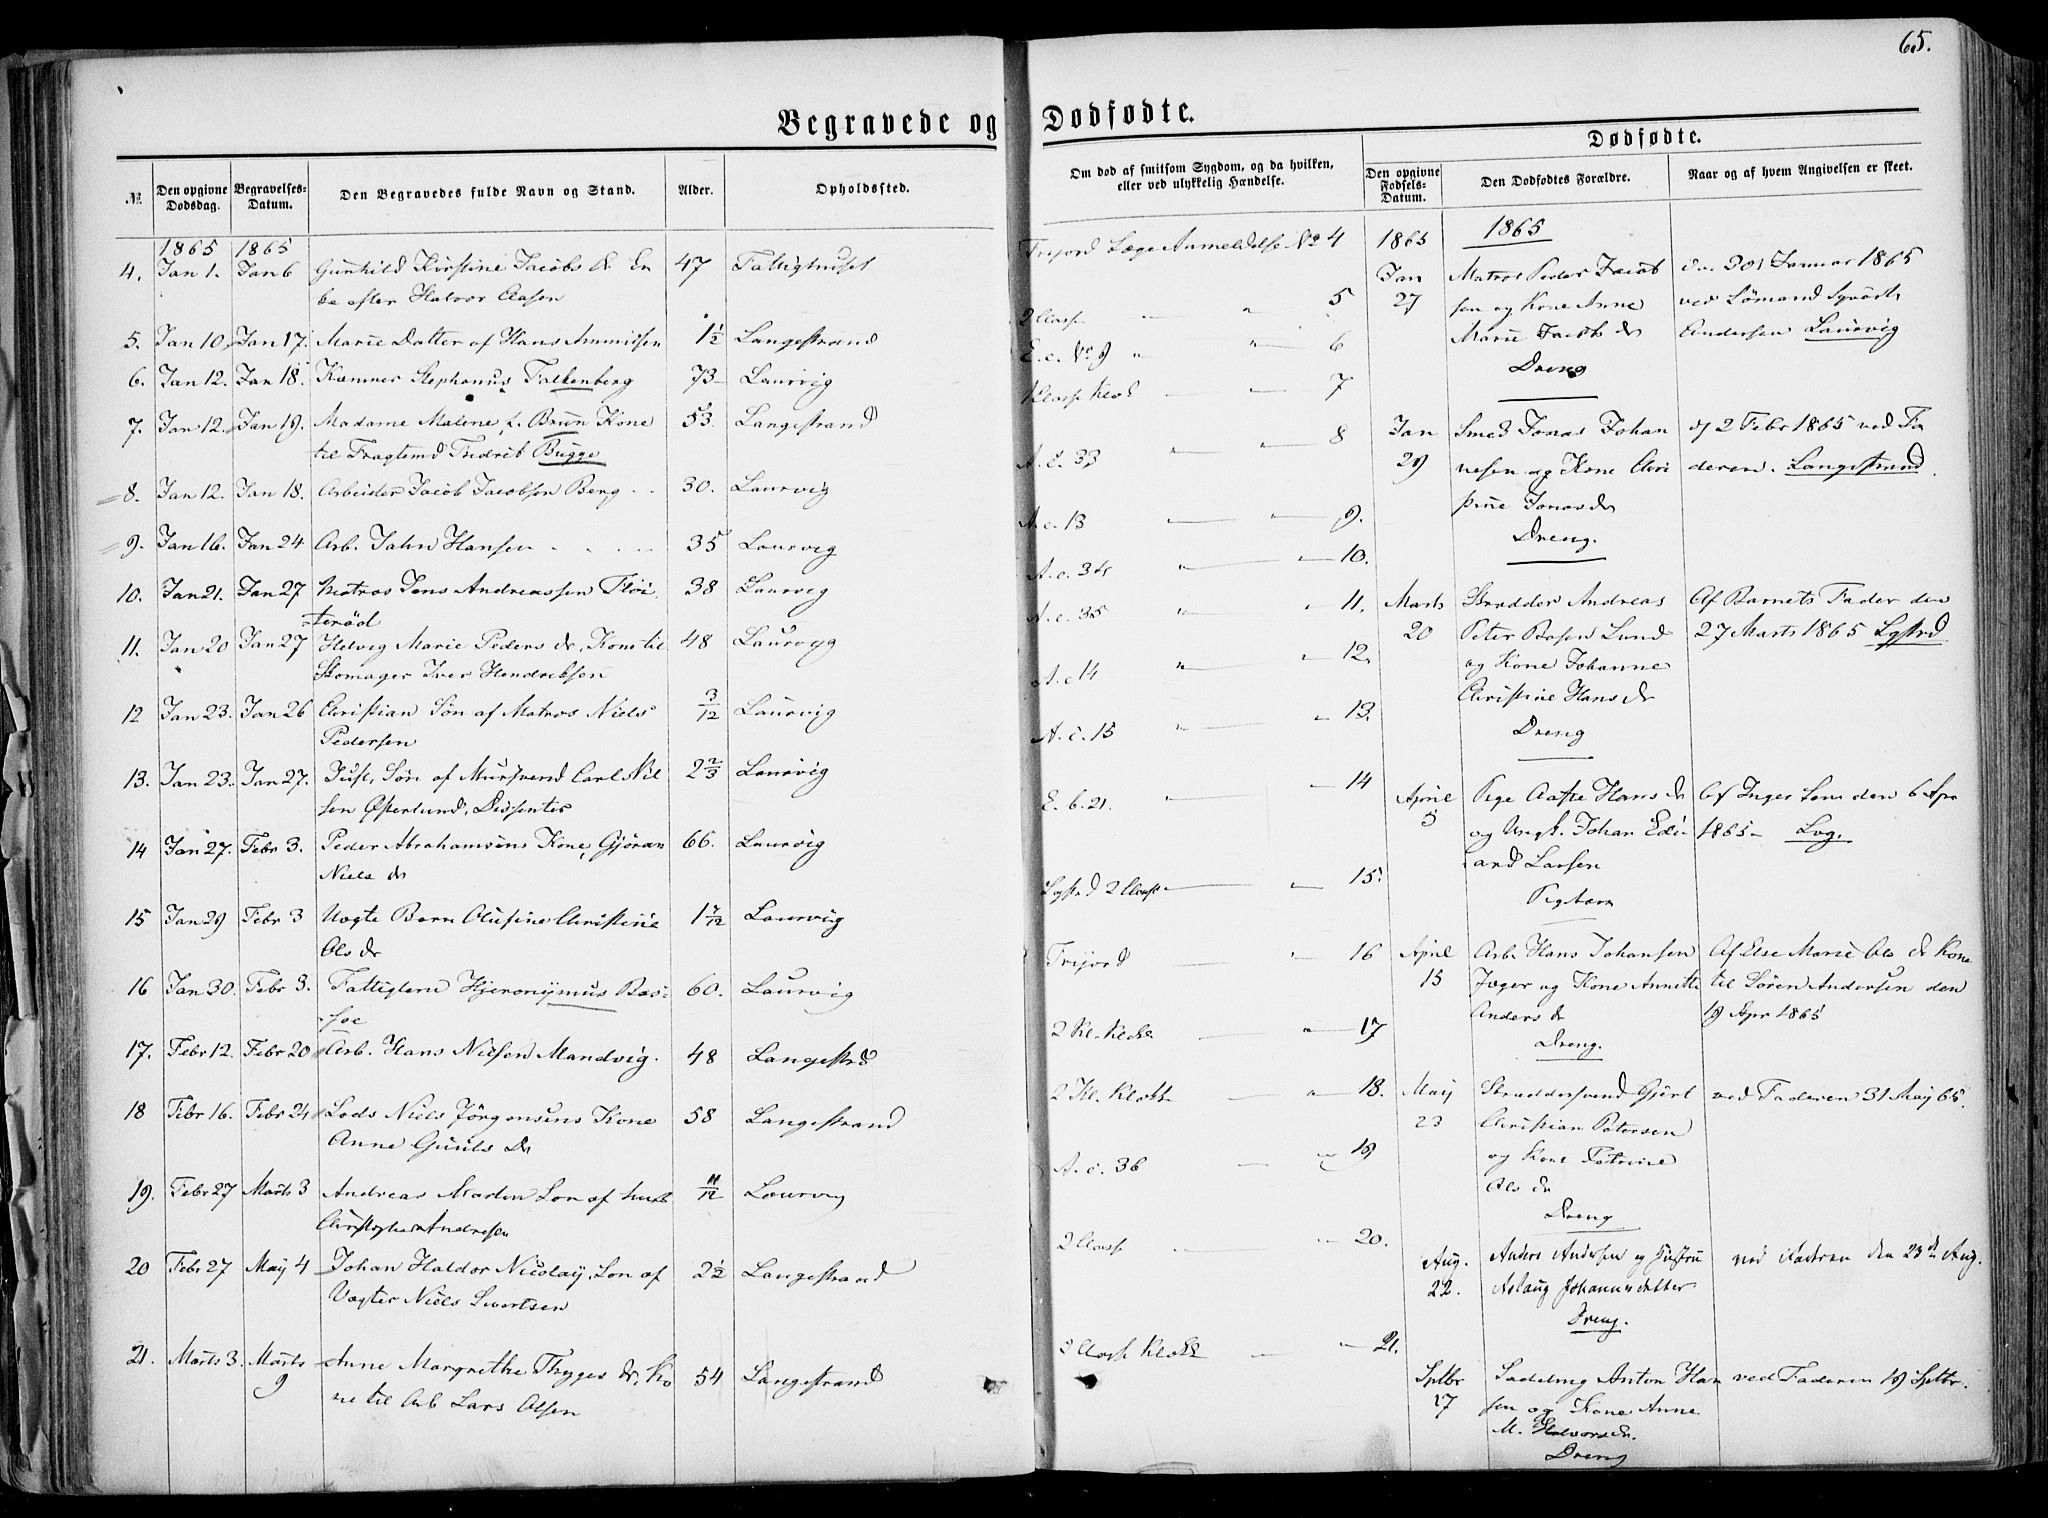 65.
Begravede og Dødfødte.
№ Den opgivne Dødsdag. Begravelses-Datum. Den Begravedes fulde Navn og Stand. Alder. Opholdssted.
1865 1865
4. Jan 1. Jan 6 Gunhild Kirstine Jacobs dr. En 47 Fattighuset
ke efter Halvor Aasen
5. Jan 10. Jan 17. Marie Datter af Hans 1½ Langestrand
6. Jan 12. Jan 18. Kæmner Stephanus Falkenberg 73 Laurvig
7. Jan 12. Jan 19. Madame Malene f. Brun Kone 53. Langestrand
til Fragtemd Fredrik Bugge
8. Jan 12. Jan 18. Arbeider Jacob Jacobsen Berg 30. Laurvig
9. Jan 16. Jan 24 Arb. Jahn Hansen 35 Laurvig
10. Jan 21. Jan 27 Matros Jens Andreassen Fløi 38 Laurvig
terød
11. Jan 20 Jan 27 Helvig Marie Peders dr, Kone til 48 Laurvig
Skomager Iver Hendriksen
12 Jan 23. Jan 26 Christian Søn af Matros Niels 3/12 Laurvig
Pedersen
13. Jan 23. Jan 27. Just, Søn af Mursvend Carl Nil 2 2/3 Laurvig
sen Østerlund, Dissenter
14 Jan 27. Febr 3. Peder Abrahamsens Kone, Gjøran 66. Laurvig
Niels dr
15 Jan 29 Febr 3 Uægte Barn Olufine Christine 1 7/12 Laurvig
Ols dr
16 Jan 30. Febr 3. Fattiglem Hjeronymus Bas- 60. Laurvig
søe
17. Febr 12. Febr 20 Arb. Hans Nielsen Mandvig. 48 Langestrd
18 Febr 16. Febr 24 Lods Niels Jørgensens Kone 58 Langestrand
Anne Guuls Dr
19. Febr 27 Marts 3 Andreas Martin Søn af 11/12 Laurvig
Christopher Andresen
20 Febr 27 May 4 Johan Haldor Nicolay, Søn af 2½ Langestrand
Vægter Niels Sivertsen
21. Marts 3. Marts 9 Anne Margrethe Thyges dr, Ko 54 Langestrand
ne til Arb Lars Olsen
Om død af smitsom Sygdom, og da hvilken, eller ved ulykkelig Hændelse.
Frijord Læge Anmeldelse No 4
2 Classe " " 5
E. c. No 9 " " 6
1 Classe Klok " 7
A. c. 33 " " 8
A. c. 13 " 9.
A. c. 34 " 10.
A. c. 35 " " 11.
A. c 14 " " 12.
A. c. 15 " " 13.
E. b. 21. " " 14
Lystrd 2 Classe " 15.
Frijord " 16
2 Kl. Klokk " 17
2 Kl. Klokk " 18.
A. c. 36 " 19
2 Classe " 20.
3 Classe Klokk " 21.
Dødfødte.
Den opgivne Fødsels-Datum. Den Dødfødtes Forældre. Naar og af hvem Angivelsen er skeet.
1865 1865
Jan 27 Matros Peder Jacob Den 30 Januar 1865
sen og Kone Anne ved Sömand
Marie Jacobs dr Andersen Laurvig
Dreng
Jan 29 Smed Jonas Johan d 2 Febr 1865 ved Fa
nesen og Kone Chri deren. Langestrand
stine Jonas dr
Dreng.
Marts 20 Skrædder Andreas Af Barnets Fader den
Peter Lund 27 Marts 1865 Lystrd
og Kone Johanne
Christine Hans dr
Dreng
April 5 Pige Aaste Hans dr Af Inger den 6 Apr
og Ungk. Johan Edv- 1865 Lvg.
ard Larsen
Pigebarn
April 15 Arb. Hans Johansen Af Else Marie Ols dr Kone
Jæger og Kone Annette til Sören Andersen den
Anders dr 19 Apr 1865
Dreng.
May 23 Skræddersvend Gjert ved Faderen 31 May 65.
Christian Petersen
og Kone Petrine
Ols dr
Dreng
Aug. 22. Anders Andersen og Hustru ved Faderen den 23de Aug.
Aslaug Johannesdatter
Dreng.
Sptbr 17 Sadelmg Anton Han ved Faderen 19 Sptbr.
sen og Kone Anne
M. Halvorsdr.
Dreng